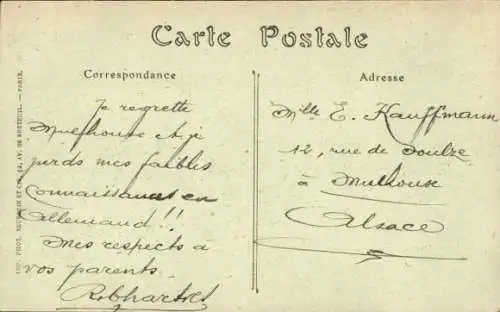 Carte Postale
Correspondance
Je regrette
Mulhouse et je
perds mes faibles
connaissances en
allemand!!
Mes respects à
vos parents.
Adresse
Mlle E. Kauffmann
12, rue de Soultz
à Mulhouse
Alsace
PHOT. ET CIE, AV. DE BRETEUIL. — PARIS.